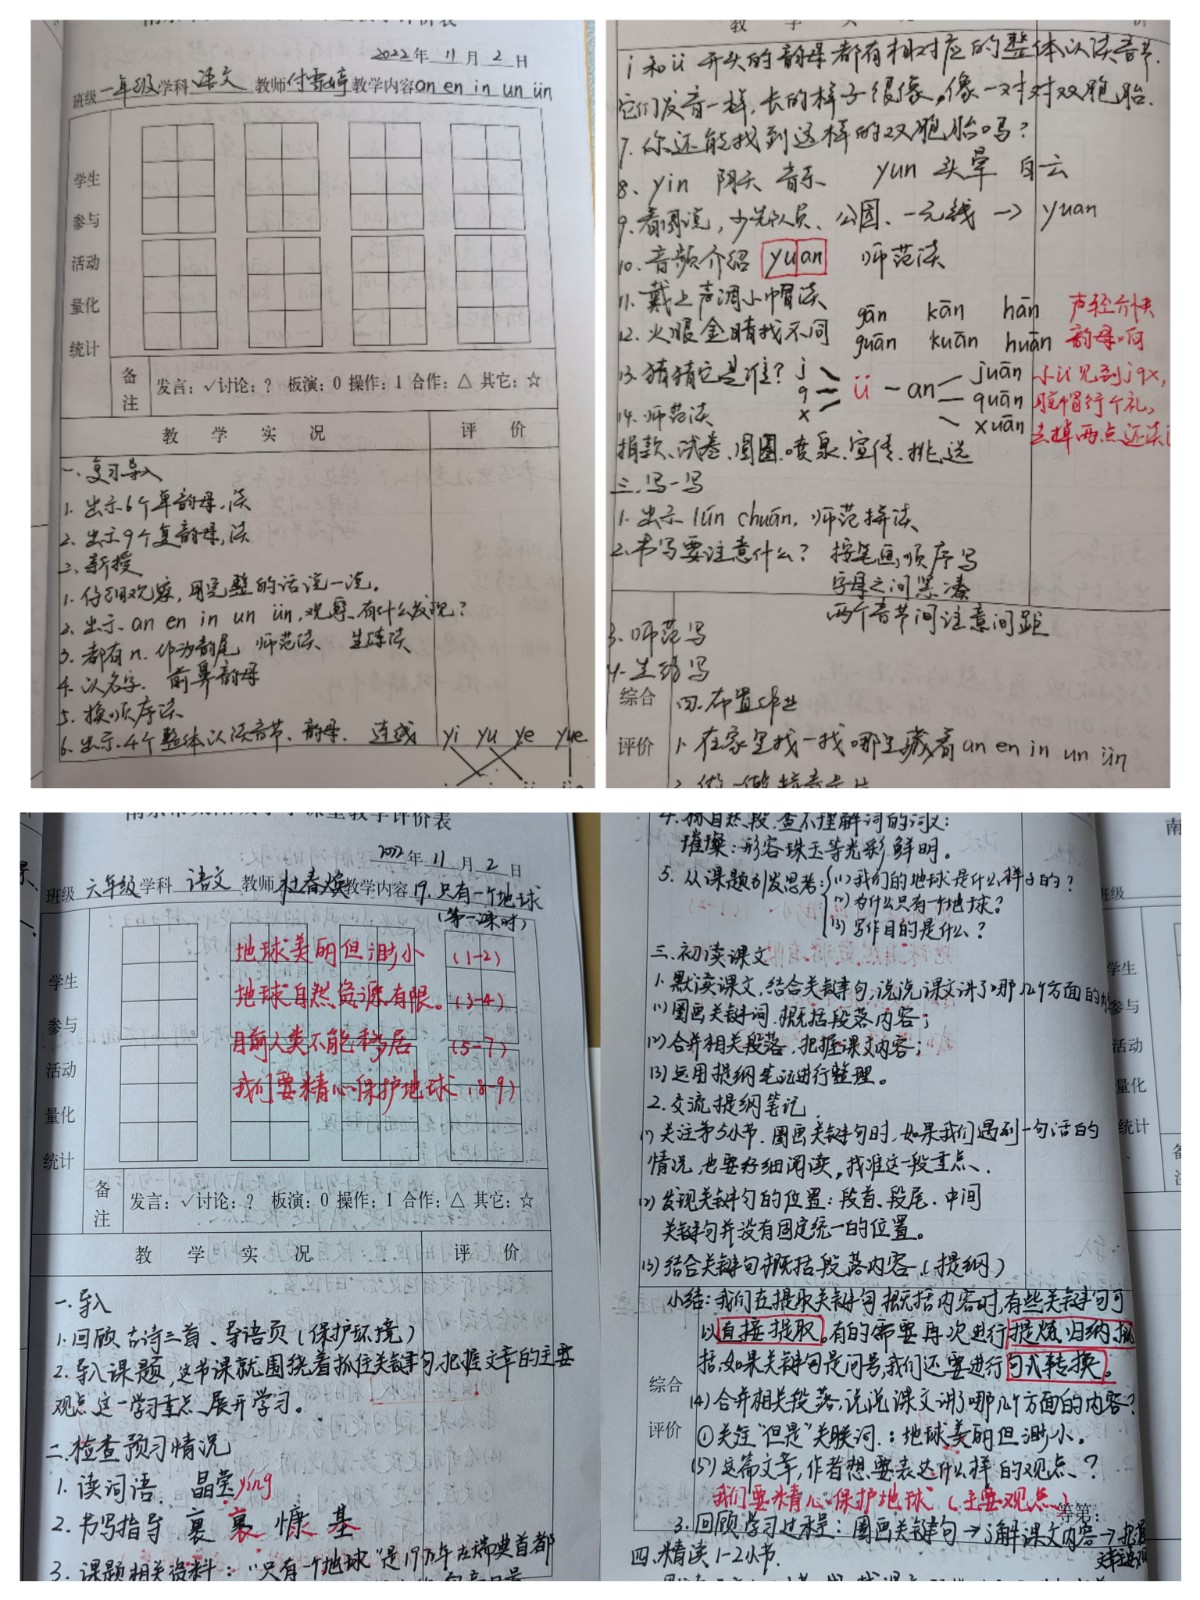 2022年 11月 2日
班级 一年级 学科 语文 教师 付雪婷 教学内容 an en in un ün
学生
参与
活动
量化
统计
备注 发言：√讨论：？ 板演：0 操作：1 合作：△ 其它：☆
教 学 实 况 评 价
一、复习导入
1. 出示6个单韵母，读
2. 出示9个复韵母，读
二、新授
1. 仔细观察，用完整的话说一说。
2. 出示 an en in un ün，观察，有什么发现？
3. 都有n，作为韵尾 师范读 生练读
4. 认名字， 前鼻韵母
5. 换顺序读
6. 出示4个整体认读音节、韵母， 连线 yi yu ye yue
教 学 实 况 价
i 和 ü 开头的韵母都有相对应的整体认读音节，
它们发音一样，长的样子很像，像一对对双胞胎．
7. 你还能找到这样的双胞胎吗？
8. yin 阴天 音乐 yun 头晕 白云
9. 看图说，少先队员、公园、一元钱 → yuan
10. 音频介绍 yuan 师范读
11. 戴上声调小帽读
12. 火眼金睛找不同 gān kān hān 声轻介快
guān kuān huān 韵母响
13. 猜猜它是谁？ j q x ü － an juān quān xuān
小ü见到jqx，
脱帽行个礼，
去掉两点还读
14. 师范读
捐款、试卷、圆圈、喷泉、宣传、挑选
三、写一写
1. 出示 lún chuán，师范拼读
2. 书写要注意什么？ 按笔画顺序写
字母之间紧凑
两个音节间注意间距
3. 师范写
4. 生练写
综合
评价
四、布置作业
1. 在家里找一找哪里藏着 an en in un ün
课堂教学评价表
2022年 11月 2日
班级 六年级 学科 语文 教师 杜春焕 教学内容 19.只有一个地球
（第一课时）
学生
参与
活动
量化
统计
地球美丽但渺小 （1-2）
地球自然资源有限。（3-4）
目前人类不能移居 （5-7）
我们要精心保护地球（8-9）
备注 发言：√讨论：？ 板演：0 操作：1 合作：△ 其它：☆
教 学 实 况 评 价
一、导入
1. 回顾古诗三首、导语页（保护环境）
2. 导入课题，这节课就围绕着抓住关键句，把握文章的主要
观点这一学习重点展开学习。
二、检查预习情况
1. 读词语． 晶莹 yíng
2. 书写指导 裹 裹 慷 基
3. 课题相关资料：“只有一个地球”是
4. 抓自然段，查不理解词的词义：
璀璨：形容珠玉等光彩鲜明。
5. 从课题引发思考：（1）我们的地球是什么样子的？
（2）为什么只有一个地球？
（3）写作目的是什么？
三、初读课文
1. 默读课文，结合关键句，说说课文讲了哪几个方面的内
（1）圈画关键词，概括段落内容；
（2）合并相关段落，把握课文内容；
（3）运用提纲笔记进行整理。
2. 交流提纲笔记
（1）关注第5小节，圈画关键句时，如果我们遇到一句话的
情况，也要仔细阅读，找准这一段重点、
（2）发现关键句的位置：段首、段尾、中间
关键句并没有固定统一的位置。
（3）结合关键句概括段落内容（提纲）
小结：我们在提取关键句，概括内容时，有些关键句可
以直接提取。有的需要再次进行提炼、归纳概
括，如果关键句是问号，我们还要进行句式转换。
综合
评价
（4）合并相关段落，说说课文讲了哪几个方面的内容？
①关注“但是”关联词：地球美丽但渺小。
（5）这篇文章，作者想要表达什么样的观点？
我们要精心保护地球（主要观点）
等第：
3. 回顾学习过程：圈画关键句→了解课文内容→
四、精读1-2小节．
学生
参与
活动
量化
统计